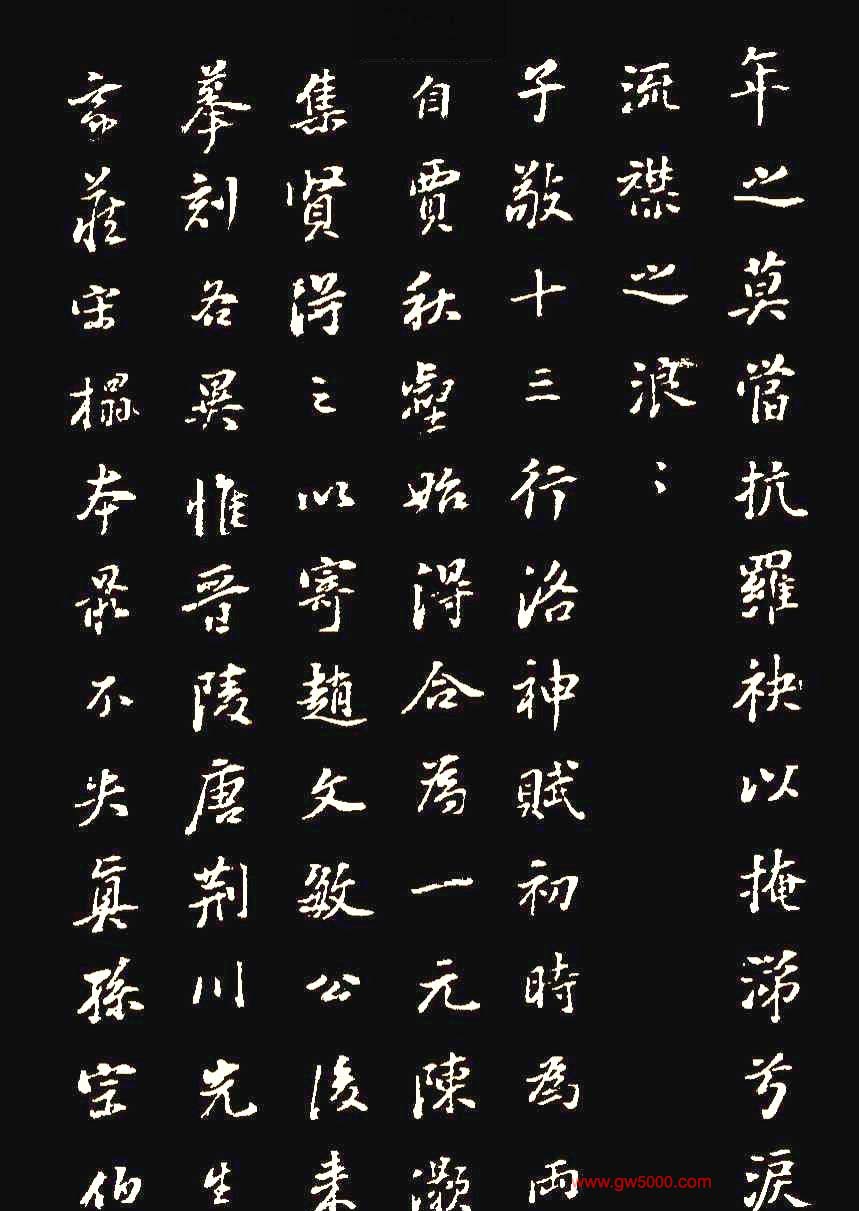 年之莫當抗羅袂以掩涕兮淚
流襟之浪〻
子敬十三行洛神賦初時為兩
自賈秋壑始得合為一元陳灝
集賢得之以寄趙文敏公後来
摹刻各異惟晉陵唐荆川先生
家藏宋榻本最不失真孫宗伯
www.gw5000.com